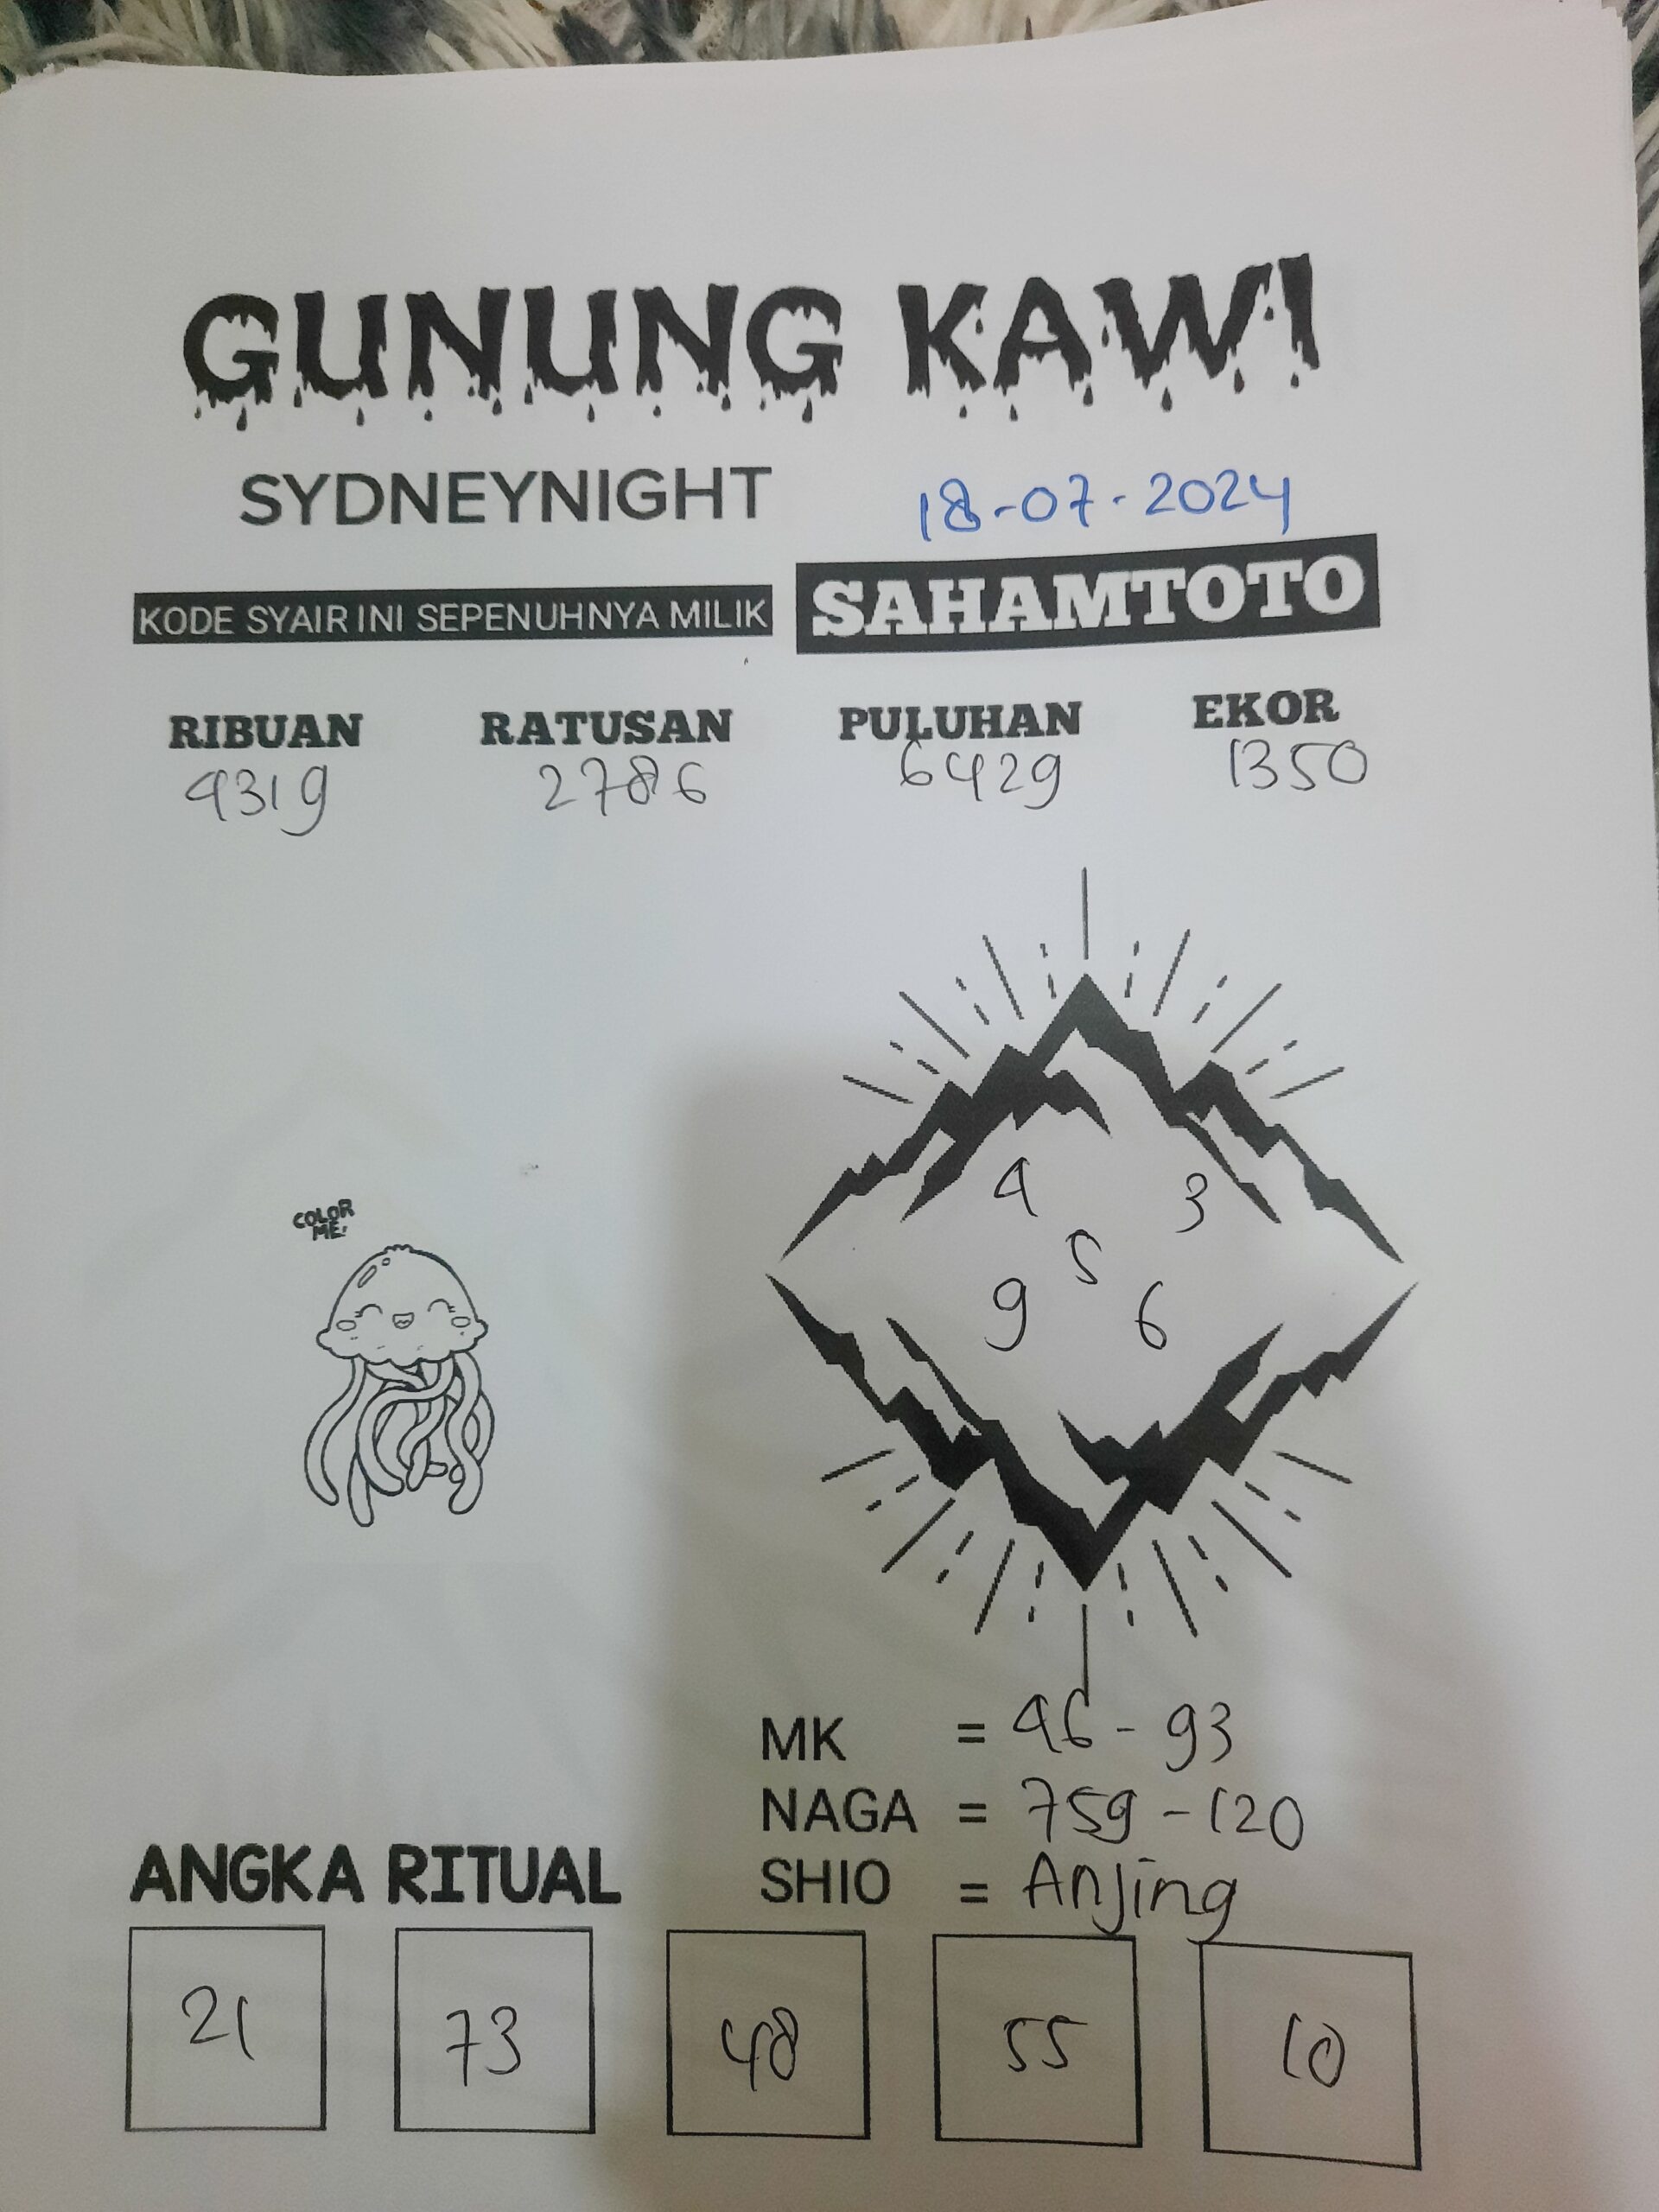 GUNUNG KAWI
SYDNEYNIGHT 18-07-2024
KODE SYAIR INI SEPENUHNYA MILIK SAHAMTOTO
RIBUAN RATUSAN PULUHAN EKOR
4319 2786 6429 1350
COLOR
ME!
4 3
5
9 6
MK = 46 - 93
NAGA = 759 - 120
SHIO = Anjing
ANGKA RITUAL
21 73 48 55 10